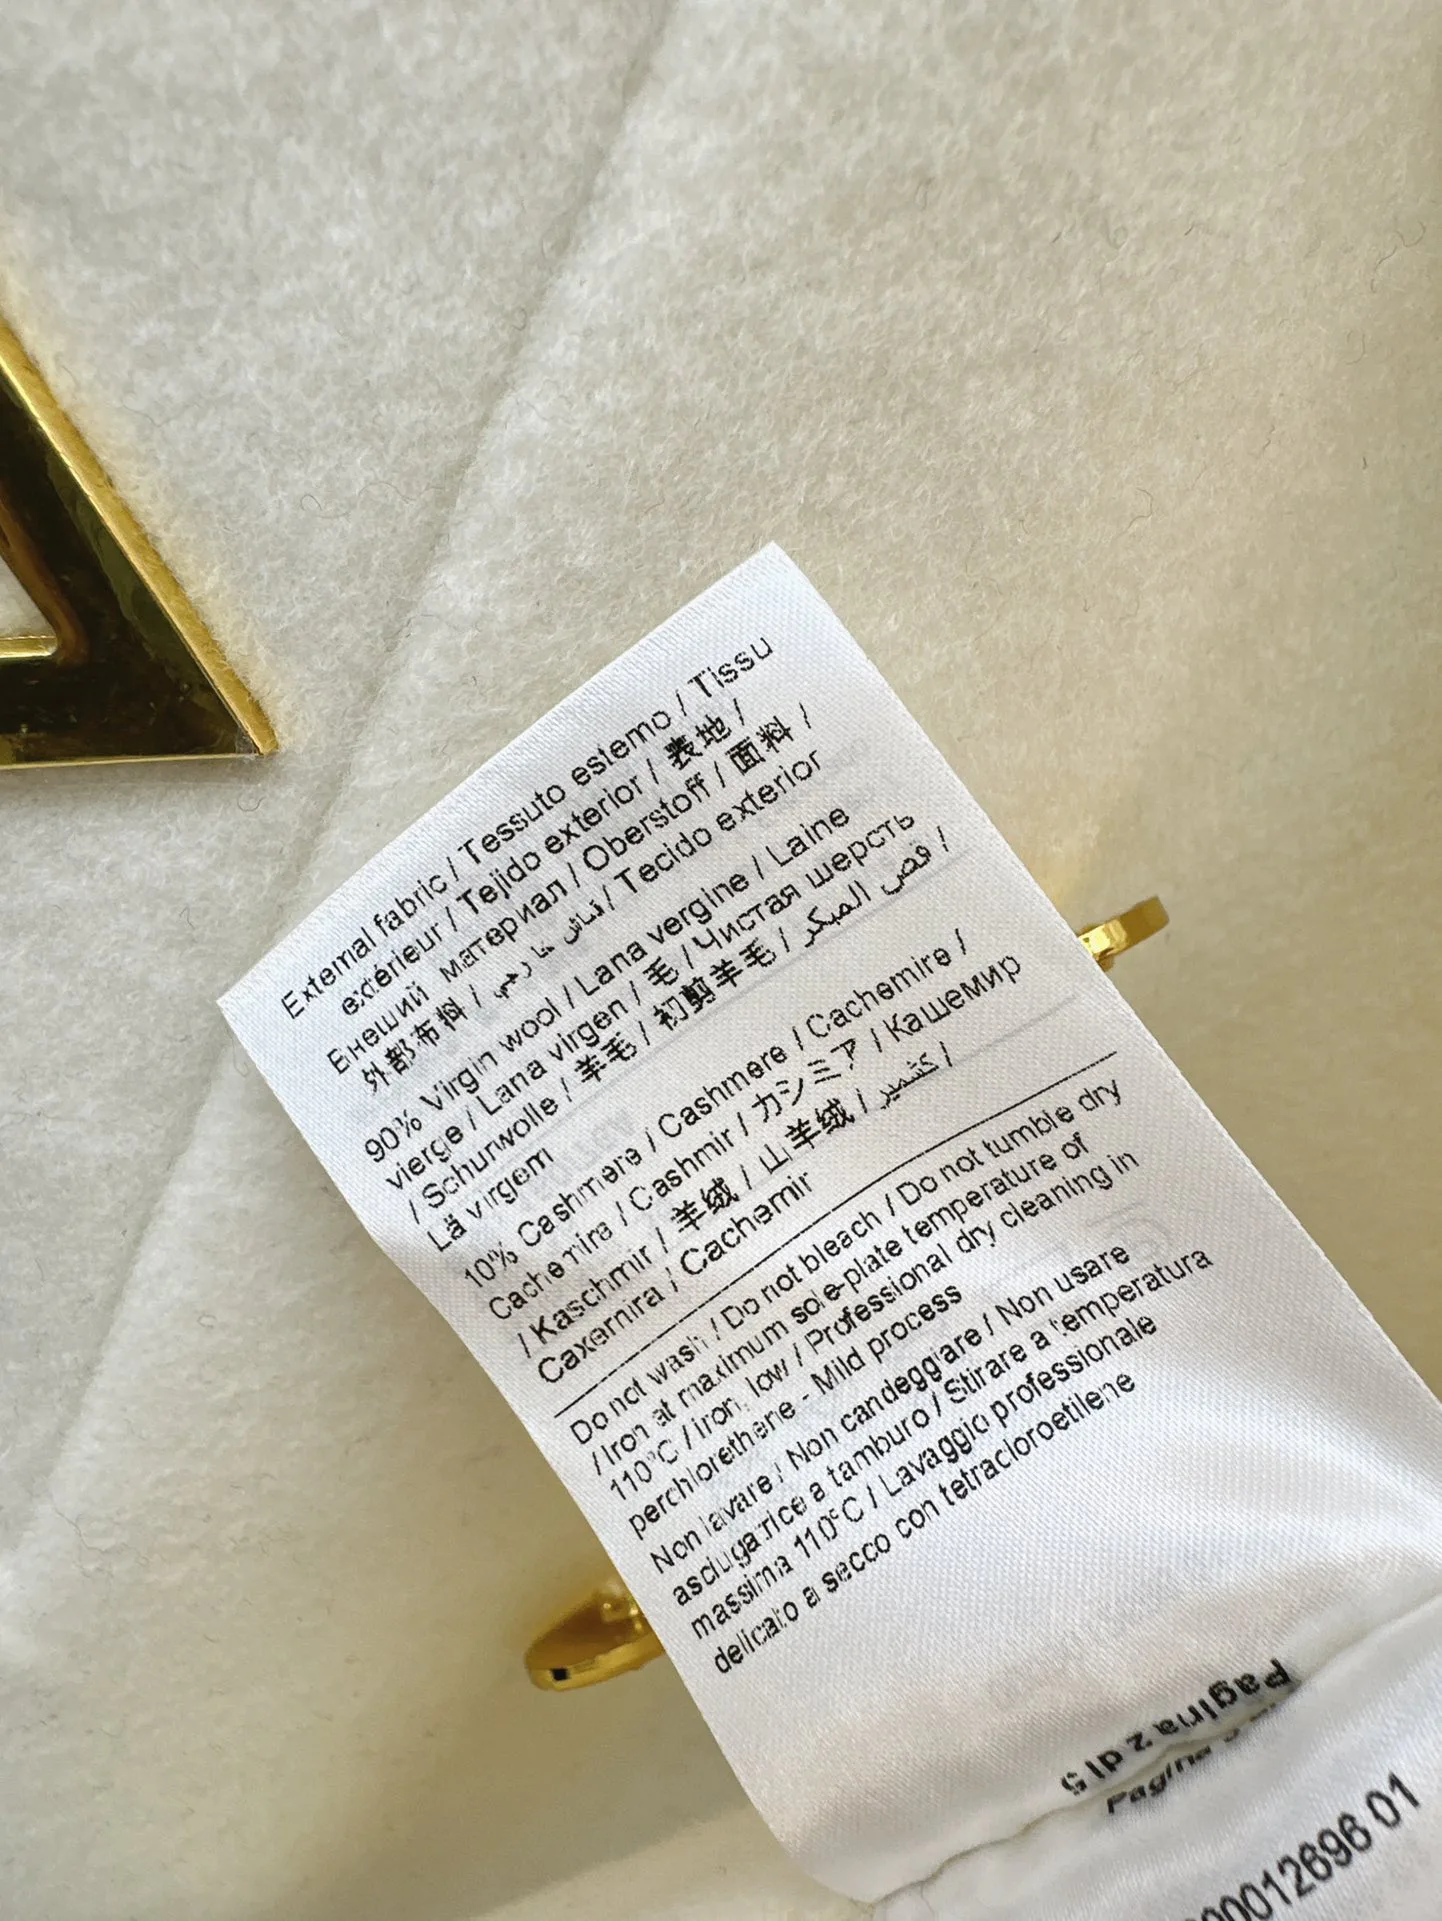 External fabric / Tessuto esterno / Tissu
extérieur / Tejido exterior / 表地 /
Внешний материал / Oberstoff / 面料 /
外部布料 / قماش خارجي / Tecido exterior
90% Virgin wool / Lana vergine / Laine
vierge / Lana virgen / 毛 / Чистая шерсть
/ Schurwolle / 羊毛 / 初剪羊毛 / قص المبكر /
Lã virgem
10% Cashmere / Cashmere / Cachemire /
Cachemira / Cashmir / カシミア / Кашемир
/ Kaschmir / 羊绒 / 山羊绒 / كشمير /
Caxemira / Cachemir
Do not wash / Do not bleach / Do not tumble dry
/ Iron at maximum sole-plate temperature of
110°C / Iron, low / Professional dry cleaning in
perchlorethane - Mild process
Non lavare / Non candeggiare / Non usare
asciugatrice a tamburo / Stirare a temperatura
massima 110°C / Lavaggio professionale
delicato a secco con tetracloroetilene
Pagina 2 di 5
Pagina
00012696 01